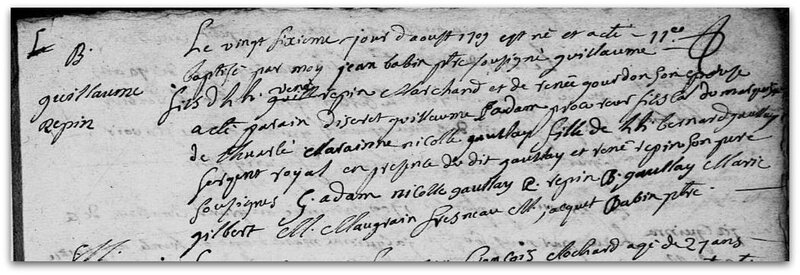 B.
guillaume
repin
Le vingt sixieme jour d'aoust 1709 est né et a eté
baptisé par moy jean babin ptre soussigné guillaume
fils d'h.h. rené repin Marchand et de renée gourdon son epouse
a eté parain discret guillaume adam procureur fiscal du marquisat
de thuarlé Maraine nicolle gaultay fille de h.h. bernard gaultay
sergent royal en presence du dit gaultay et rené repin son pere
soussignes G. adam nicolle gaultay R. repin B. gaultay Marie
gilbert M. Maugrain fresneau M. jacquet Babin ptre
françois Clochard agé de 27 ans